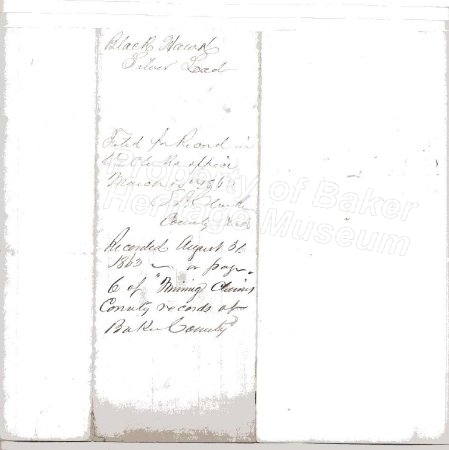 Black Hawk
Silver Lead
Filed for Record in
the Clerks office
March
Clerk
County
Recorded August 31.
1863 on page
6 of "Mining Claims
County records of
Baker County"
Property of Baker
Heritage Museum